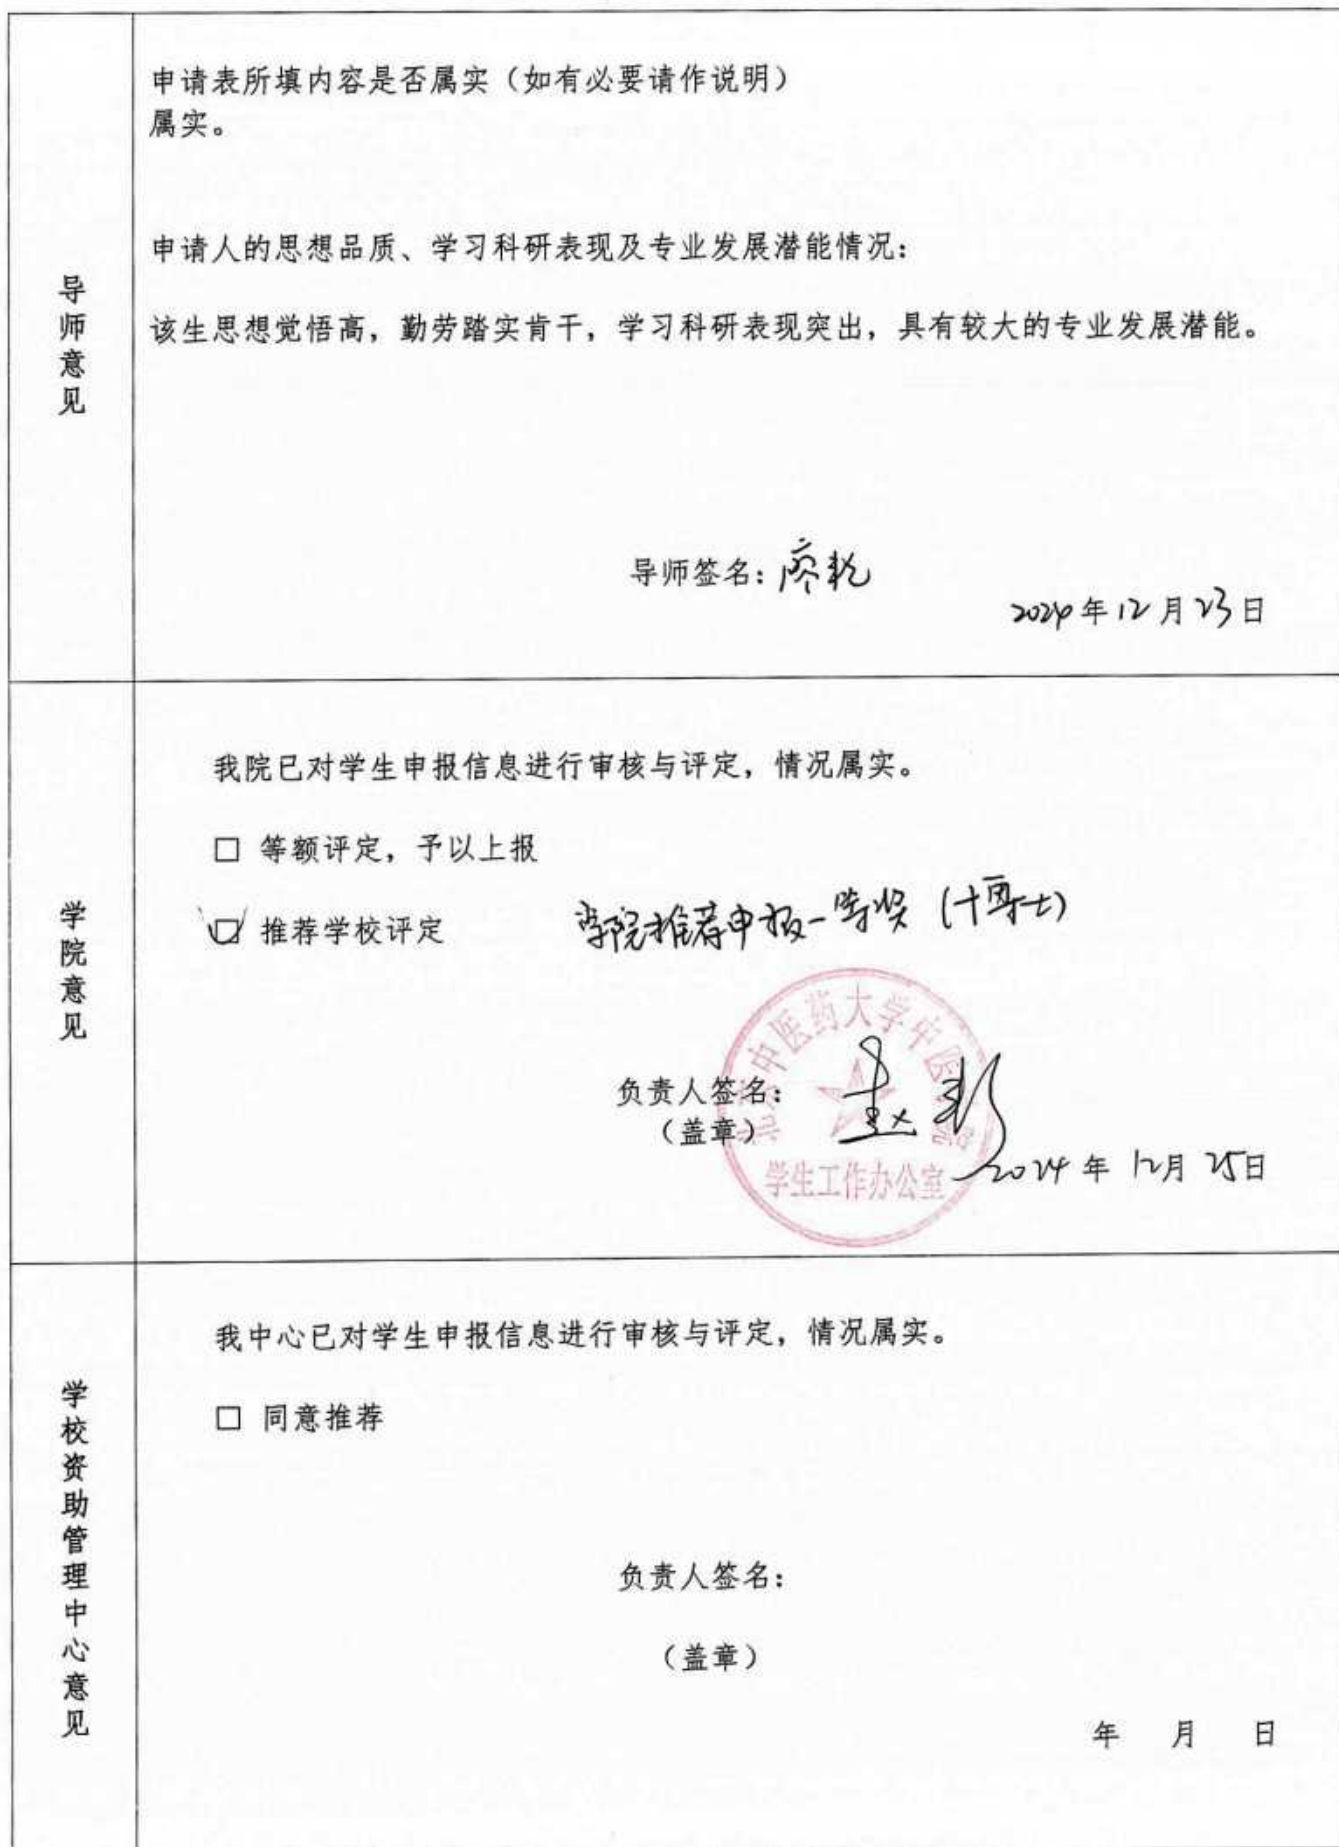 导师意见
申请表所填内容是否属实（如有必要请作说明）
属实。
申请人的思想品质、学习科研表现及专业发展潜能情况：
该生思想觉悟高，勤劳踏实肯干，学习科研表现突出，具有较大的专业发展潜能。
导师签名：廖乾
2024年12月23日
学院意见
我院已对学生申报信息进行审核与评定，情况属实。
□ 等额评定，予以上报
☑ 推荐学校评定 学院推荐申报一等奖（博士）
北京中医药大学中医学院
负责人签名：
（盖章）
学生工作办公室
2024年12月25日
学校资助管理中心意见
我中心已对学生申报信息进行审核与评定，情况属实。
□ 同意推荐
负责人签名：
（盖章）
年 月 日